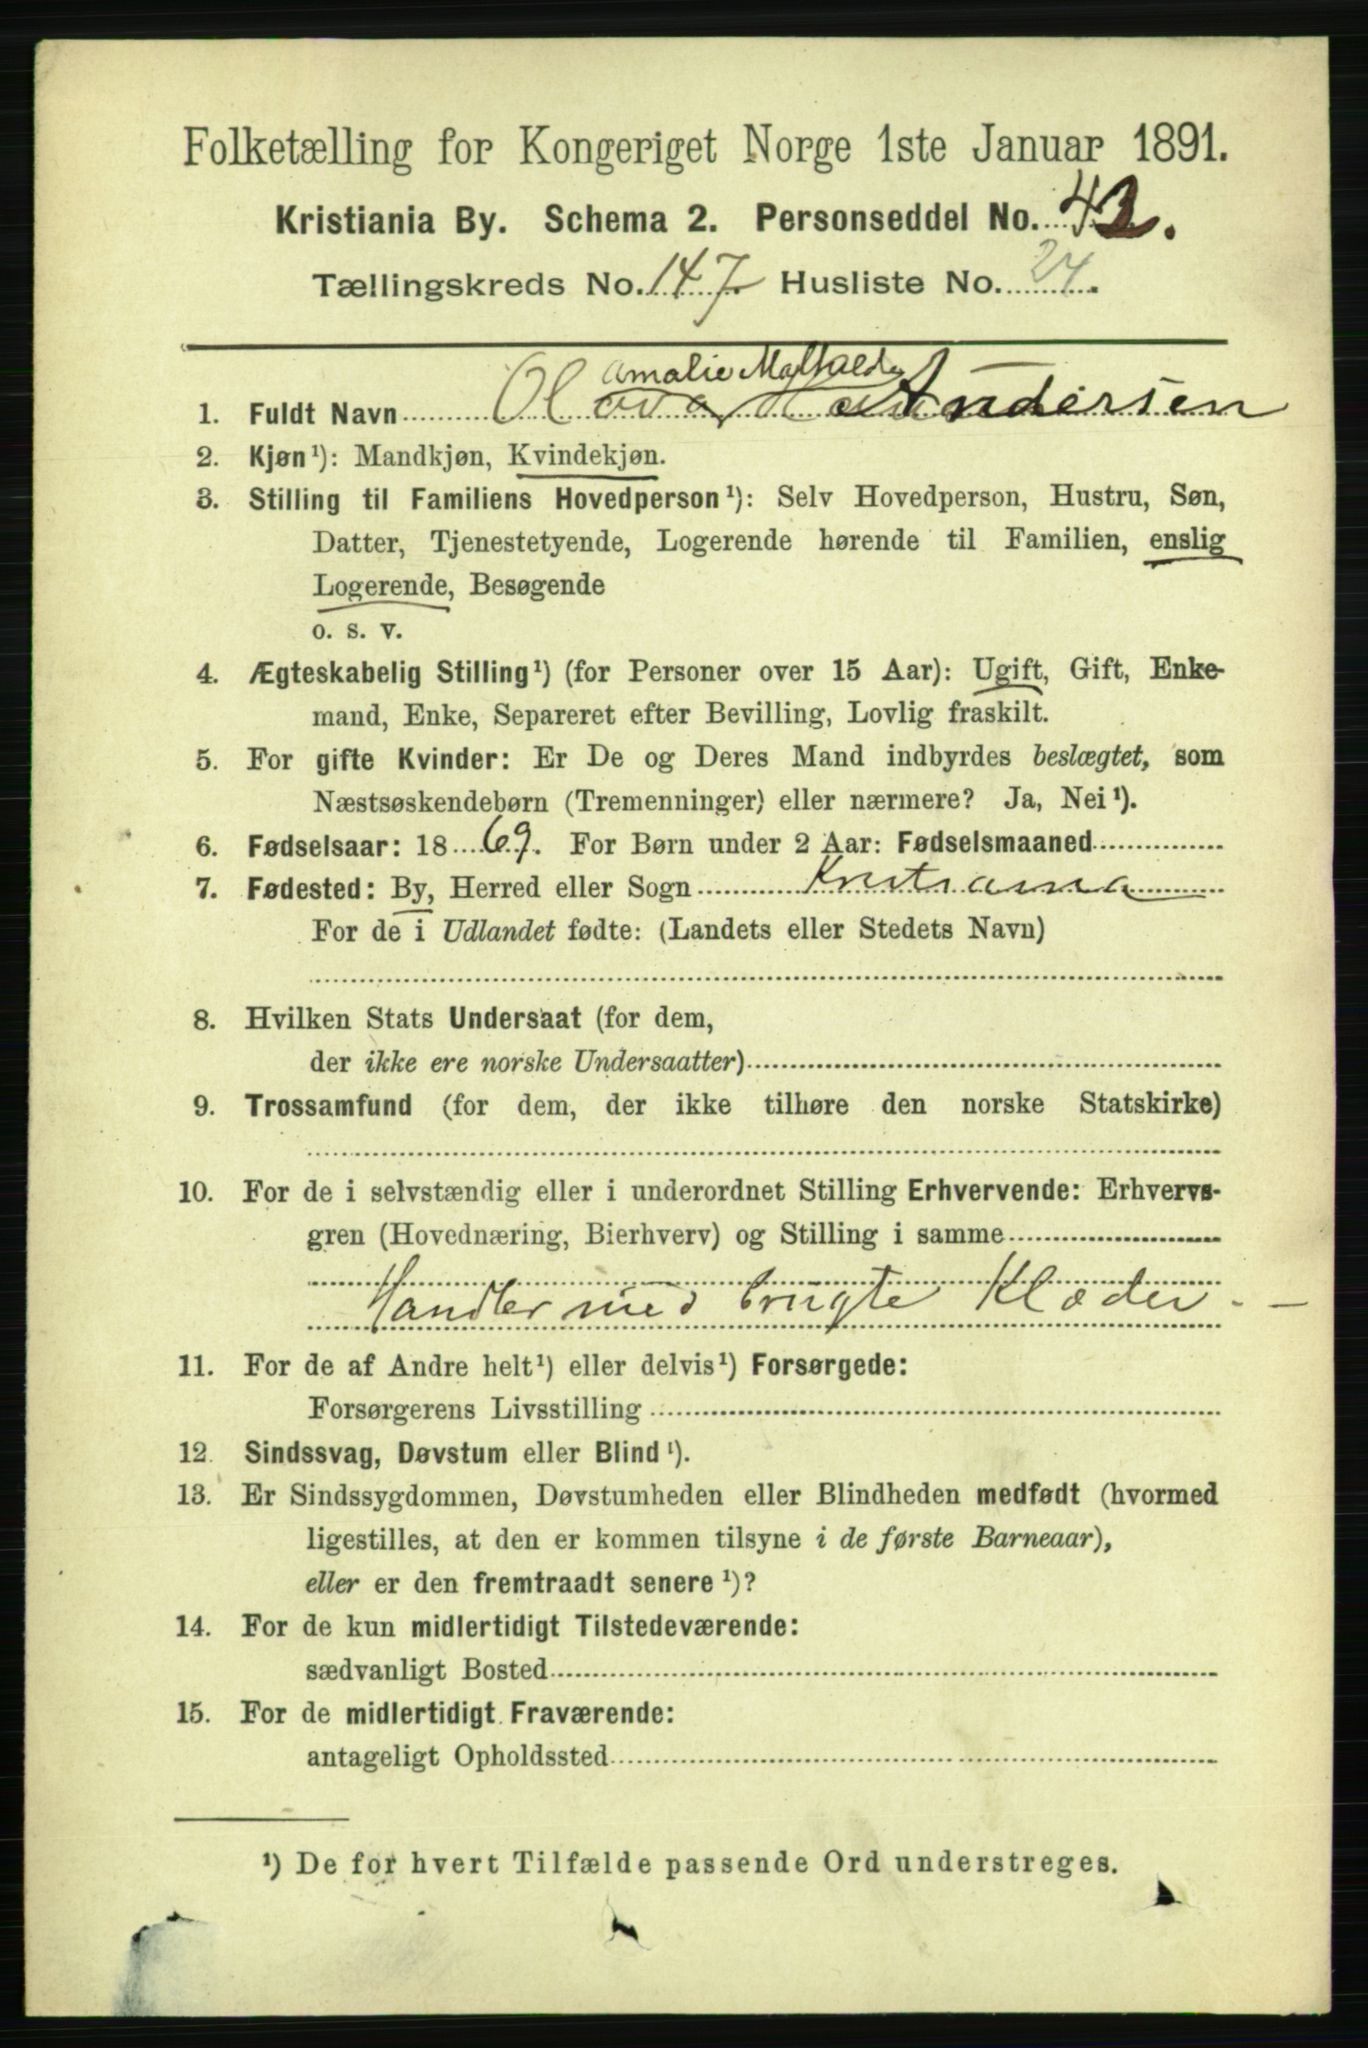 Folketælling for Kongeriget Norge 1ste Januar 1891.
Kristiania By. Schema 2. Personseddel No. 42.
Tællingskreds No. 147. Husliste No. 24.
Amalie Mathilde
1. Fuldt Navn Olava Andersen
2. Kjøn¹): Mandkjøn, Kvindekjøn.
3. Stilling til Familiens Hovedperson¹): Selv Hovedperson, Hustru, Søn,
Datter, Tjenestetyende, Logerende hørende til Familien, enslig
Logerende, Besøgende
o. s. v.
4. Ægteskabelig Stilling¹) (for Personer over 15 Aar): Ugift, Gift, Enke-
mand, Enke, Separeret efter Bevilling, Lovlig fraskilt.
5. For gifte Kvinder: Er De og Deres Mand indbyrdes beslægtet, som
Næstsøskendebørn (Tremenninger) eller nærmere? Ja, Nei¹).
6. Fødselsaar: 1869. For Børn under 2 Aar: Fødselsmaaned
7. Fødested: By, Herred eller Sogn Kristiania
For de i Udlandet fødte: (Landets eller Stedets Navn)
8. Hvilken Stats Undersaat (for dem,
der ikke ere norske Undersaatter)
9. Trossamfund (for dem, der ikke tilhøre den norske Statskirke)
10. For de i selvstændig eller i underordnet Stilling Erhvervende: Erhvervs-
gren (Hovednæring, Bierhverv) og Stilling i samme
Handler med brugte Klæder. —
11. For de af Andre helt¹) eller delvis¹) Forsørgede:
Forsørgerens Livsstilling
12. Sindssvag, Døvstum eller Blind¹).
13. Er Sindssygdommen, Døvstumheden eller Blindheden medfødt (hvormed
ligestilles, at den er kommen tilsyne i de første Barneaar),
eller er den fremtraadt senere¹)?
14. For de kun midlertidigt Tilstedeværende:
sædvanligt Bosted
15. For de midlertidigt Fraværende:
antageligt Opholdssted
¹) De for hvert Tilfælde passende Ord understreges.